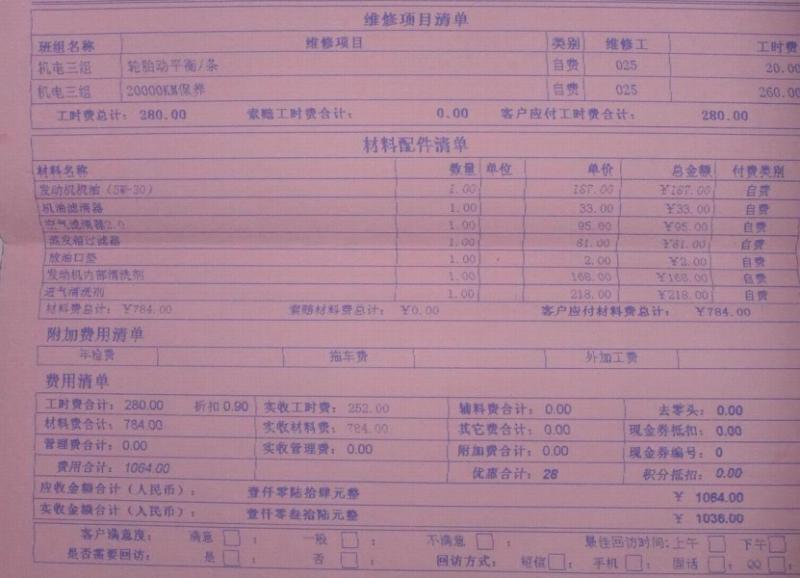 维修项目清单
班组名称 维修项目 类别 维修工 工时费
机电三组 轮胎动平衡/条 自费 025 20.00
机电三组 20000KM保养 自费 025 260.00
工时费总计: 280.00 索赔工时费合计: 0.00 客户应付工时费合计: 280.00
材料配件清单
材料名称 数量 单位 单价 总金额 付费类别
发动机机油(5W-30) 1.00 187.00 ¥187.00 自费
机油滤清器 1.00 33.00 ¥33.00 自费
空气滤清器2.0 1.00 95.00 ¥95.00 自费
蒸发箱过滤器 1.00 81.00 ¥81.00 自费
放油口垫 1.00 2.00 ¥2.00 自费
发动机内部清洗剂 1.00 168.00 ¥168.00 自费
进气清洗剂 1.00 218.00 ¥218.00 自费
材料费总计: ¥784.00 索赔材料费总计: ¥0.00 客户应付材料费总计: ¥784.00
附加费用清单
年检费 拖车费 外加工费
费用清单
工时费合计: 280.00 折扣 0.90 实收工时费: 252.00 辅料费合计: 0.00 去零头: 0.00
材料费合计: 784.00 实收材料费: 784.00 其它费合计: 0.00 现金券抵扣: 0.00
管理费合计: 0.00 实收管理费: 0.00 附加费合计: 0.00 现金券编号: 0
费用合计: 1064.00 优惠合计: 28 积分抵扣: 0.00
应收金额合计(人民币): 壹仟零陆拾肆元整 ¥ 1064.00
实收金额合计(人民币): 壹仟零叁拾陆元整 ¥ 1036.00
客户满意度: 满意 □; 一般 □; 不满意 □; 最佳回访时间: 上午 □ 下午 □
是否需要回访: 是 □; 否 □; 回访方式: 短信 □; 手机 □; 固话 □; QQ □;